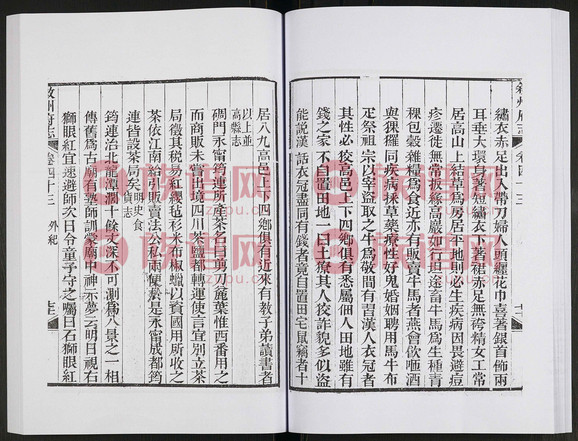 繡衣赤足出入帶刀婦人頭纏花巾喜著銀首飾兩
耳垂大環身著短繡衣下著裙赤足無袴精女工常
居高山上結草為房居平地則必生疾病因畏避痘
疹遷徙無常扳緣高巖如行坦途畜牛馬為生種青
稞包穀雜糧為食近亦有販賣牛馬者燕會飲咂酒
與猓玀同疾病採草藥療性好鬼婚姻聘用馬牛布
疋祭祖宗以宰盜取之牛為敬間有習漢人衣冠者
其性必狡高邑上下四鄉俱有悉屬佃人田地雖有
錢之家不自置田地一曰土獠其人狡詐貌多似盜
能說漢話衣冠盡同有錢者竟自置田宅鼠竊者十
敘州府志 卷四十三
居八九高邑上下四鄉俱有近來有教子弟讀書者
以上並高縣志
碉門永甯筠連所產茶名曰剪刀麄葉惟西番用之
而商販未嘗出境四川茶鹽都轉運使言宜別立茶
局徵其稅易紅纓氈衫米布椒蠟以資國用所收之
茶依江南給引販賣法公私兩便於是永甯成都筠
連皆設茶局矣明史食貨志
筠連治北龍潭濶十餘丈深不可測為八景之一相
傳舊為古廟有塾師訓蒙廟中神示夢云明日視右
獅眼紅宜速避師次日令童子守之囑曰石獅眼紅
敘州府志 卷四十三 外紀